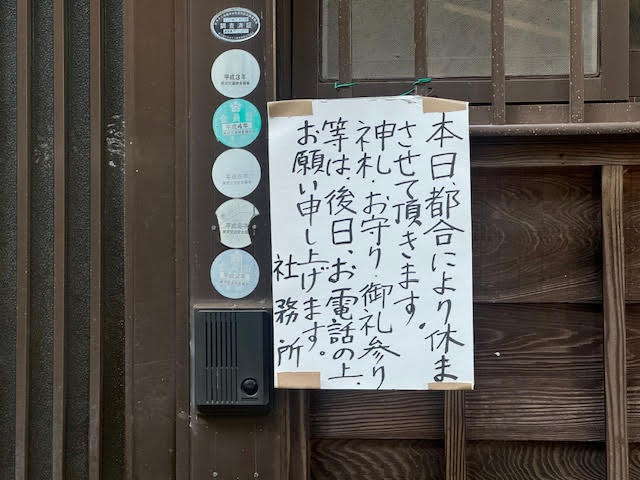 本日、都合により休ま
させて頂きます。
神札・お守り・御礼参り
等は、後日、お電話の上、
お願い申し上げます。
社務所
調査済証
平成3年
平成4年